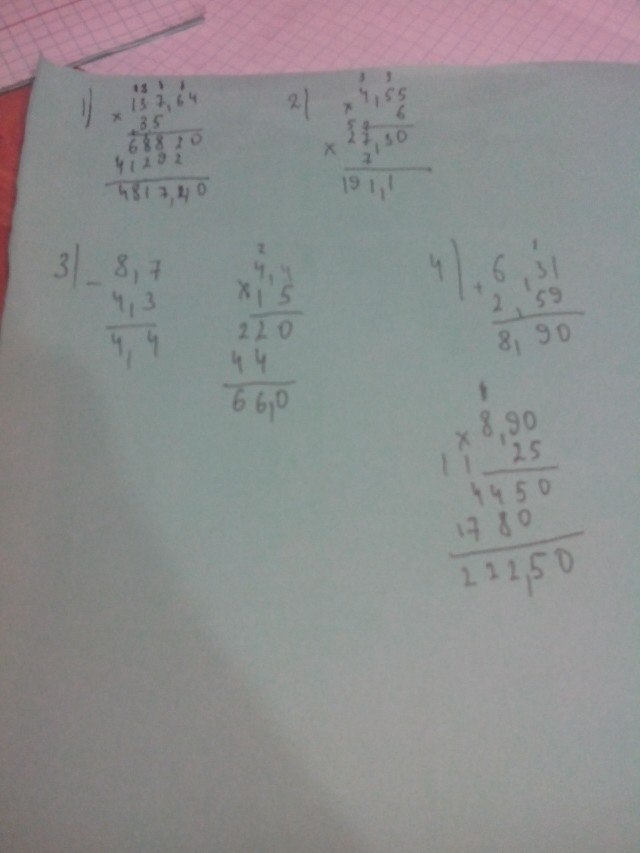 1)
137,64
× 35
68820
41292
4817,40
2)
4,55
× 6
27,30
× 7
191,1
3)
- 8,7
4,3
4,4
2
4,4
× 15
220
44
66,0
4)
1
+ 6,31
2,59
8,90
8,90
× 25
1 1
4450
1780
222,50